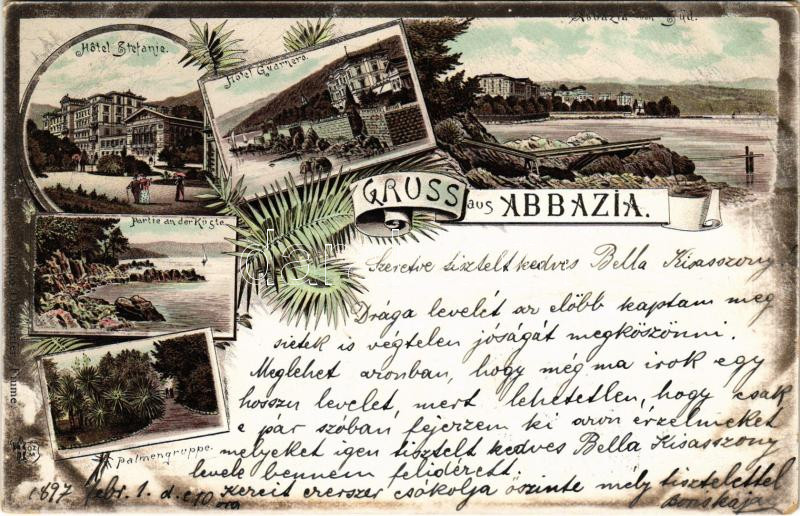 Hôtel Stefanie.
Hotel Quarnero.
Abbazia von Süd.
GRUSS aus ABBAZIA.
Partie an der Küste.
Palmengruppe.
Szeretve tisztelt kedves Bella Kisasszony!
Drága levelét az előbb kaptam meg
sietek is végtelen jóságát megköszönni.
Meglehet azonban, hogy még ma irok egy
hosszu levelet, mert lehetetlen, hogy csak
e par szóban fejezzem ki azon érzelmeket
melyeket igen tisztelt kedves Bella Kisasszony
levele bennem felidézett.
1897 febr. 1. d. e 10 óra
Kezeit ezerszer csókolja őszinte mely tisztelettel
Boriskája